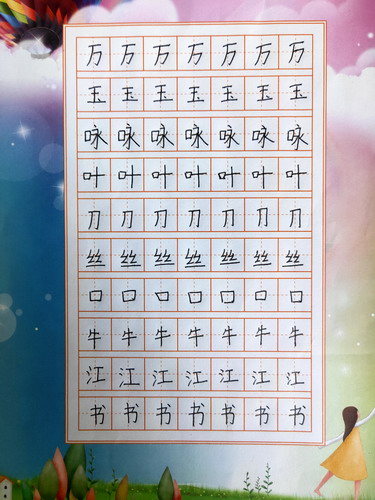 万万万万万万万
玉玉玉玉玉玉玉
咏咏咏咏咏咏咏
叶叶叶叶叶叶叶
刀刀刀刀刀刀刀
丝丝丝丝丝丝丝
口口口口口口口
牛牛牛牛牛牛牛
江江江江江江江
书书书书书书书